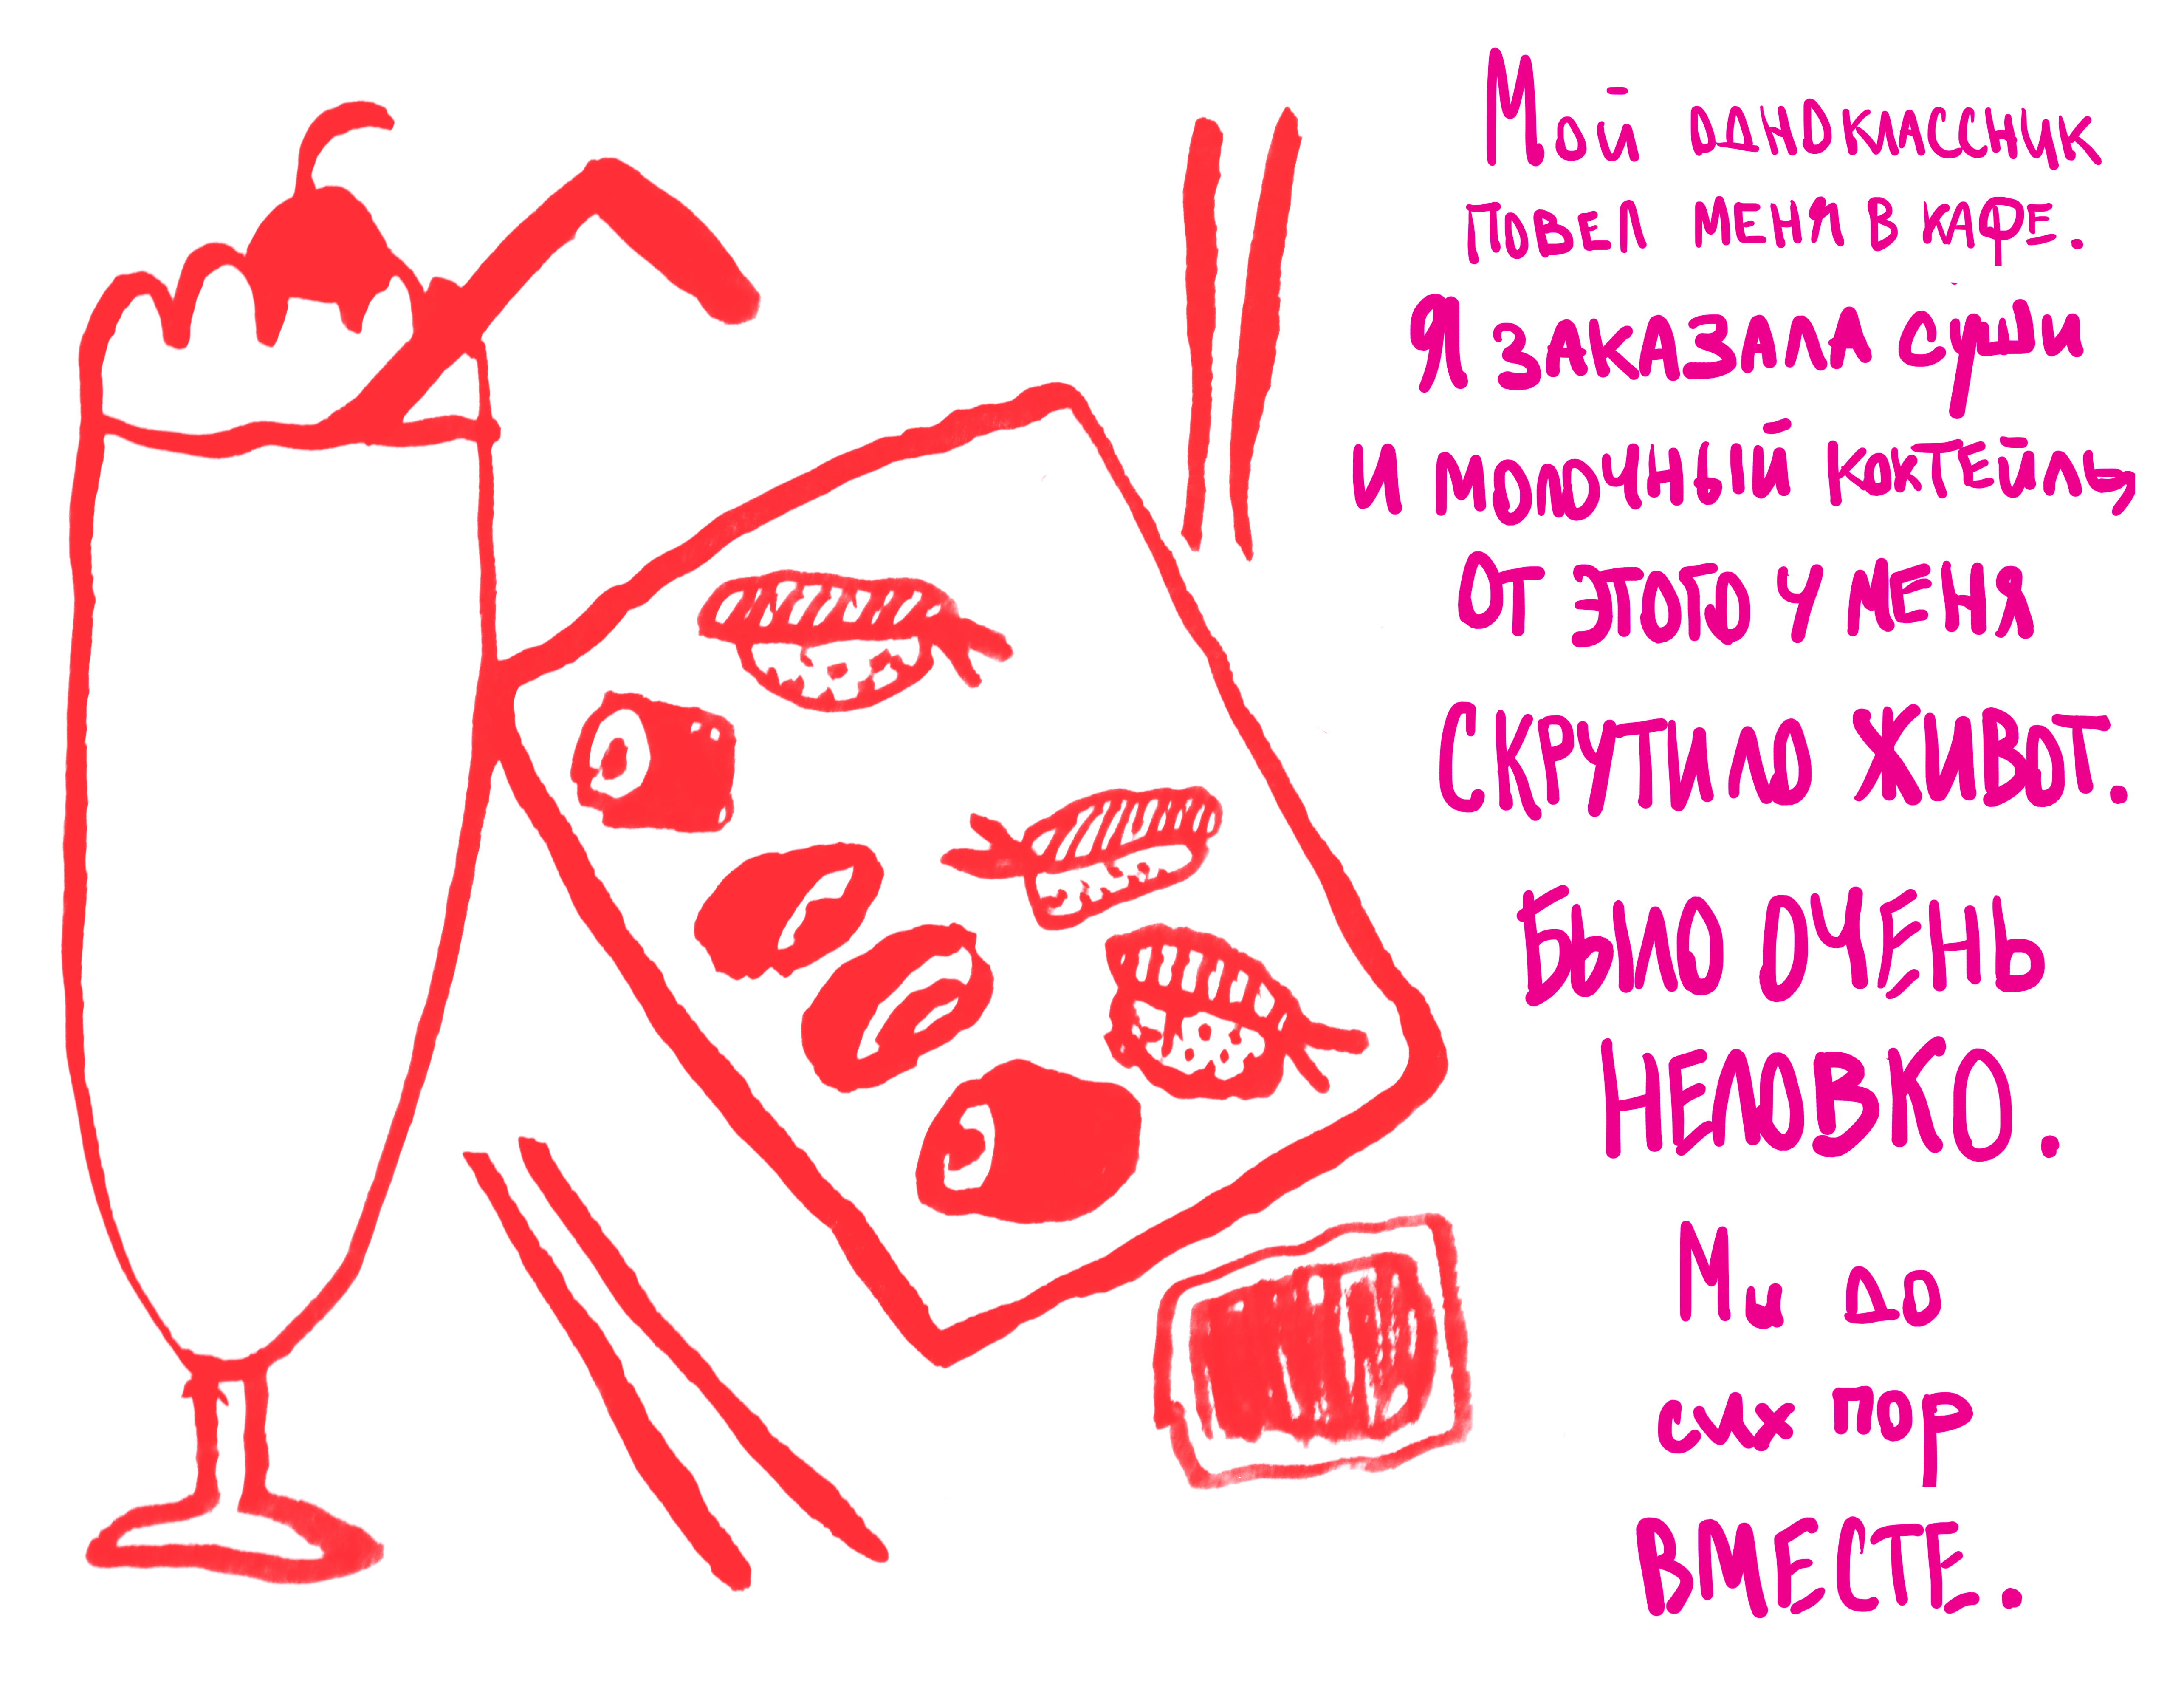 Мой одноклассник
повел меня в кафе.
Я заказала суши
и молочный коктейль,
от этого у меня
скрутило живот.
Было очень
неловко.
Мы до
сих пор
вместе.